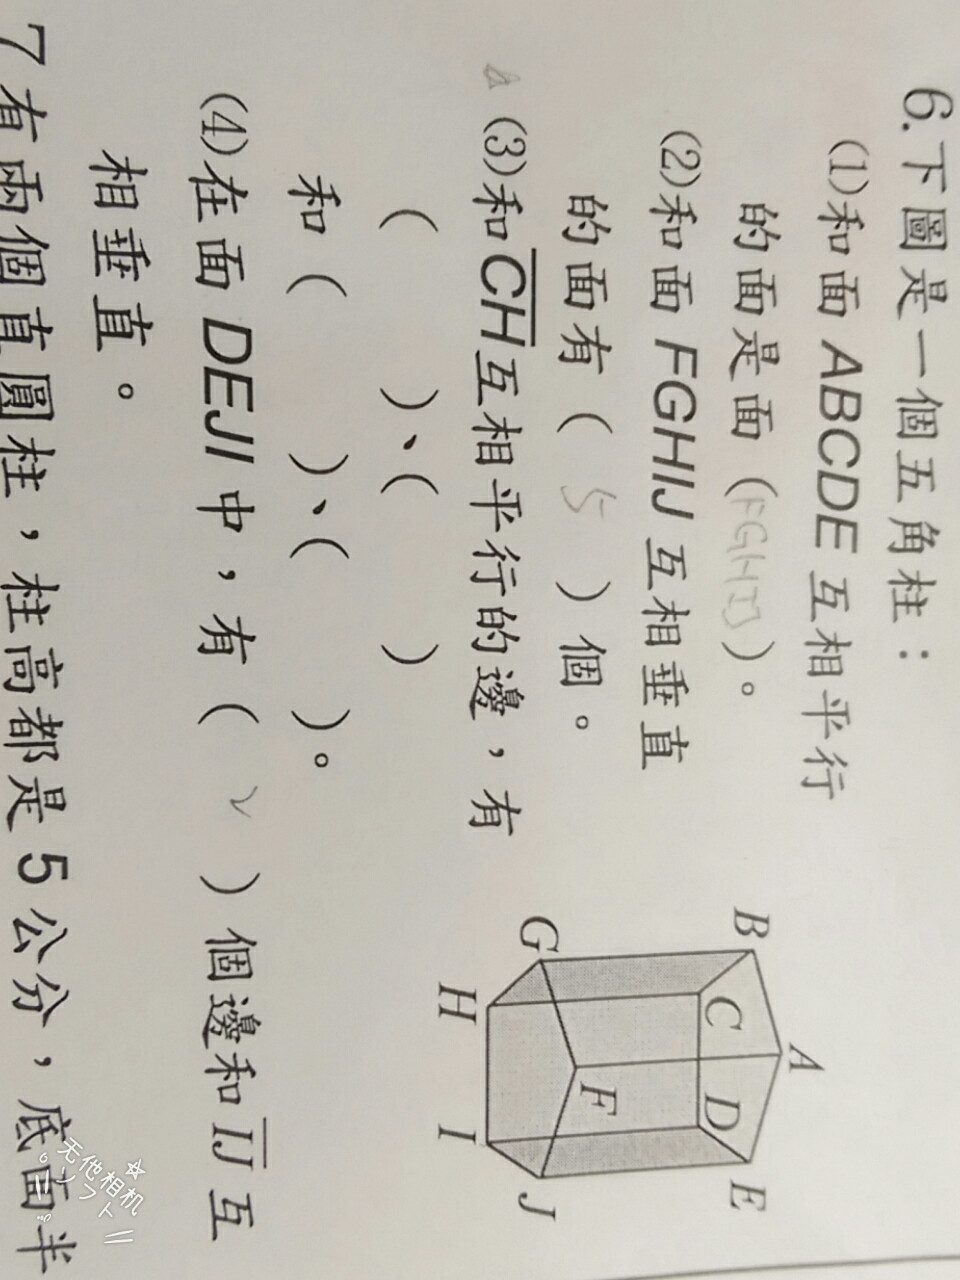 6.下圖是一個五角柱：
(1)和面 ABCDE 互相平行
的面是面（FGHIJ）。
(2)和面 FGHIJ 互相垂直
的面有（ 5 ）個。
(3)和CH互相平行的邊，有
（　　）、（　　）
和（　　）、（　　）。
(4)在面 DEJI 中，有（ 2 ）個邊和 IJ 互
相垂直。
7 有兩個直圓柱，柱高都是 5 公分，底面半
A
B
E
C
D
G
F
J
H
I
无他相机